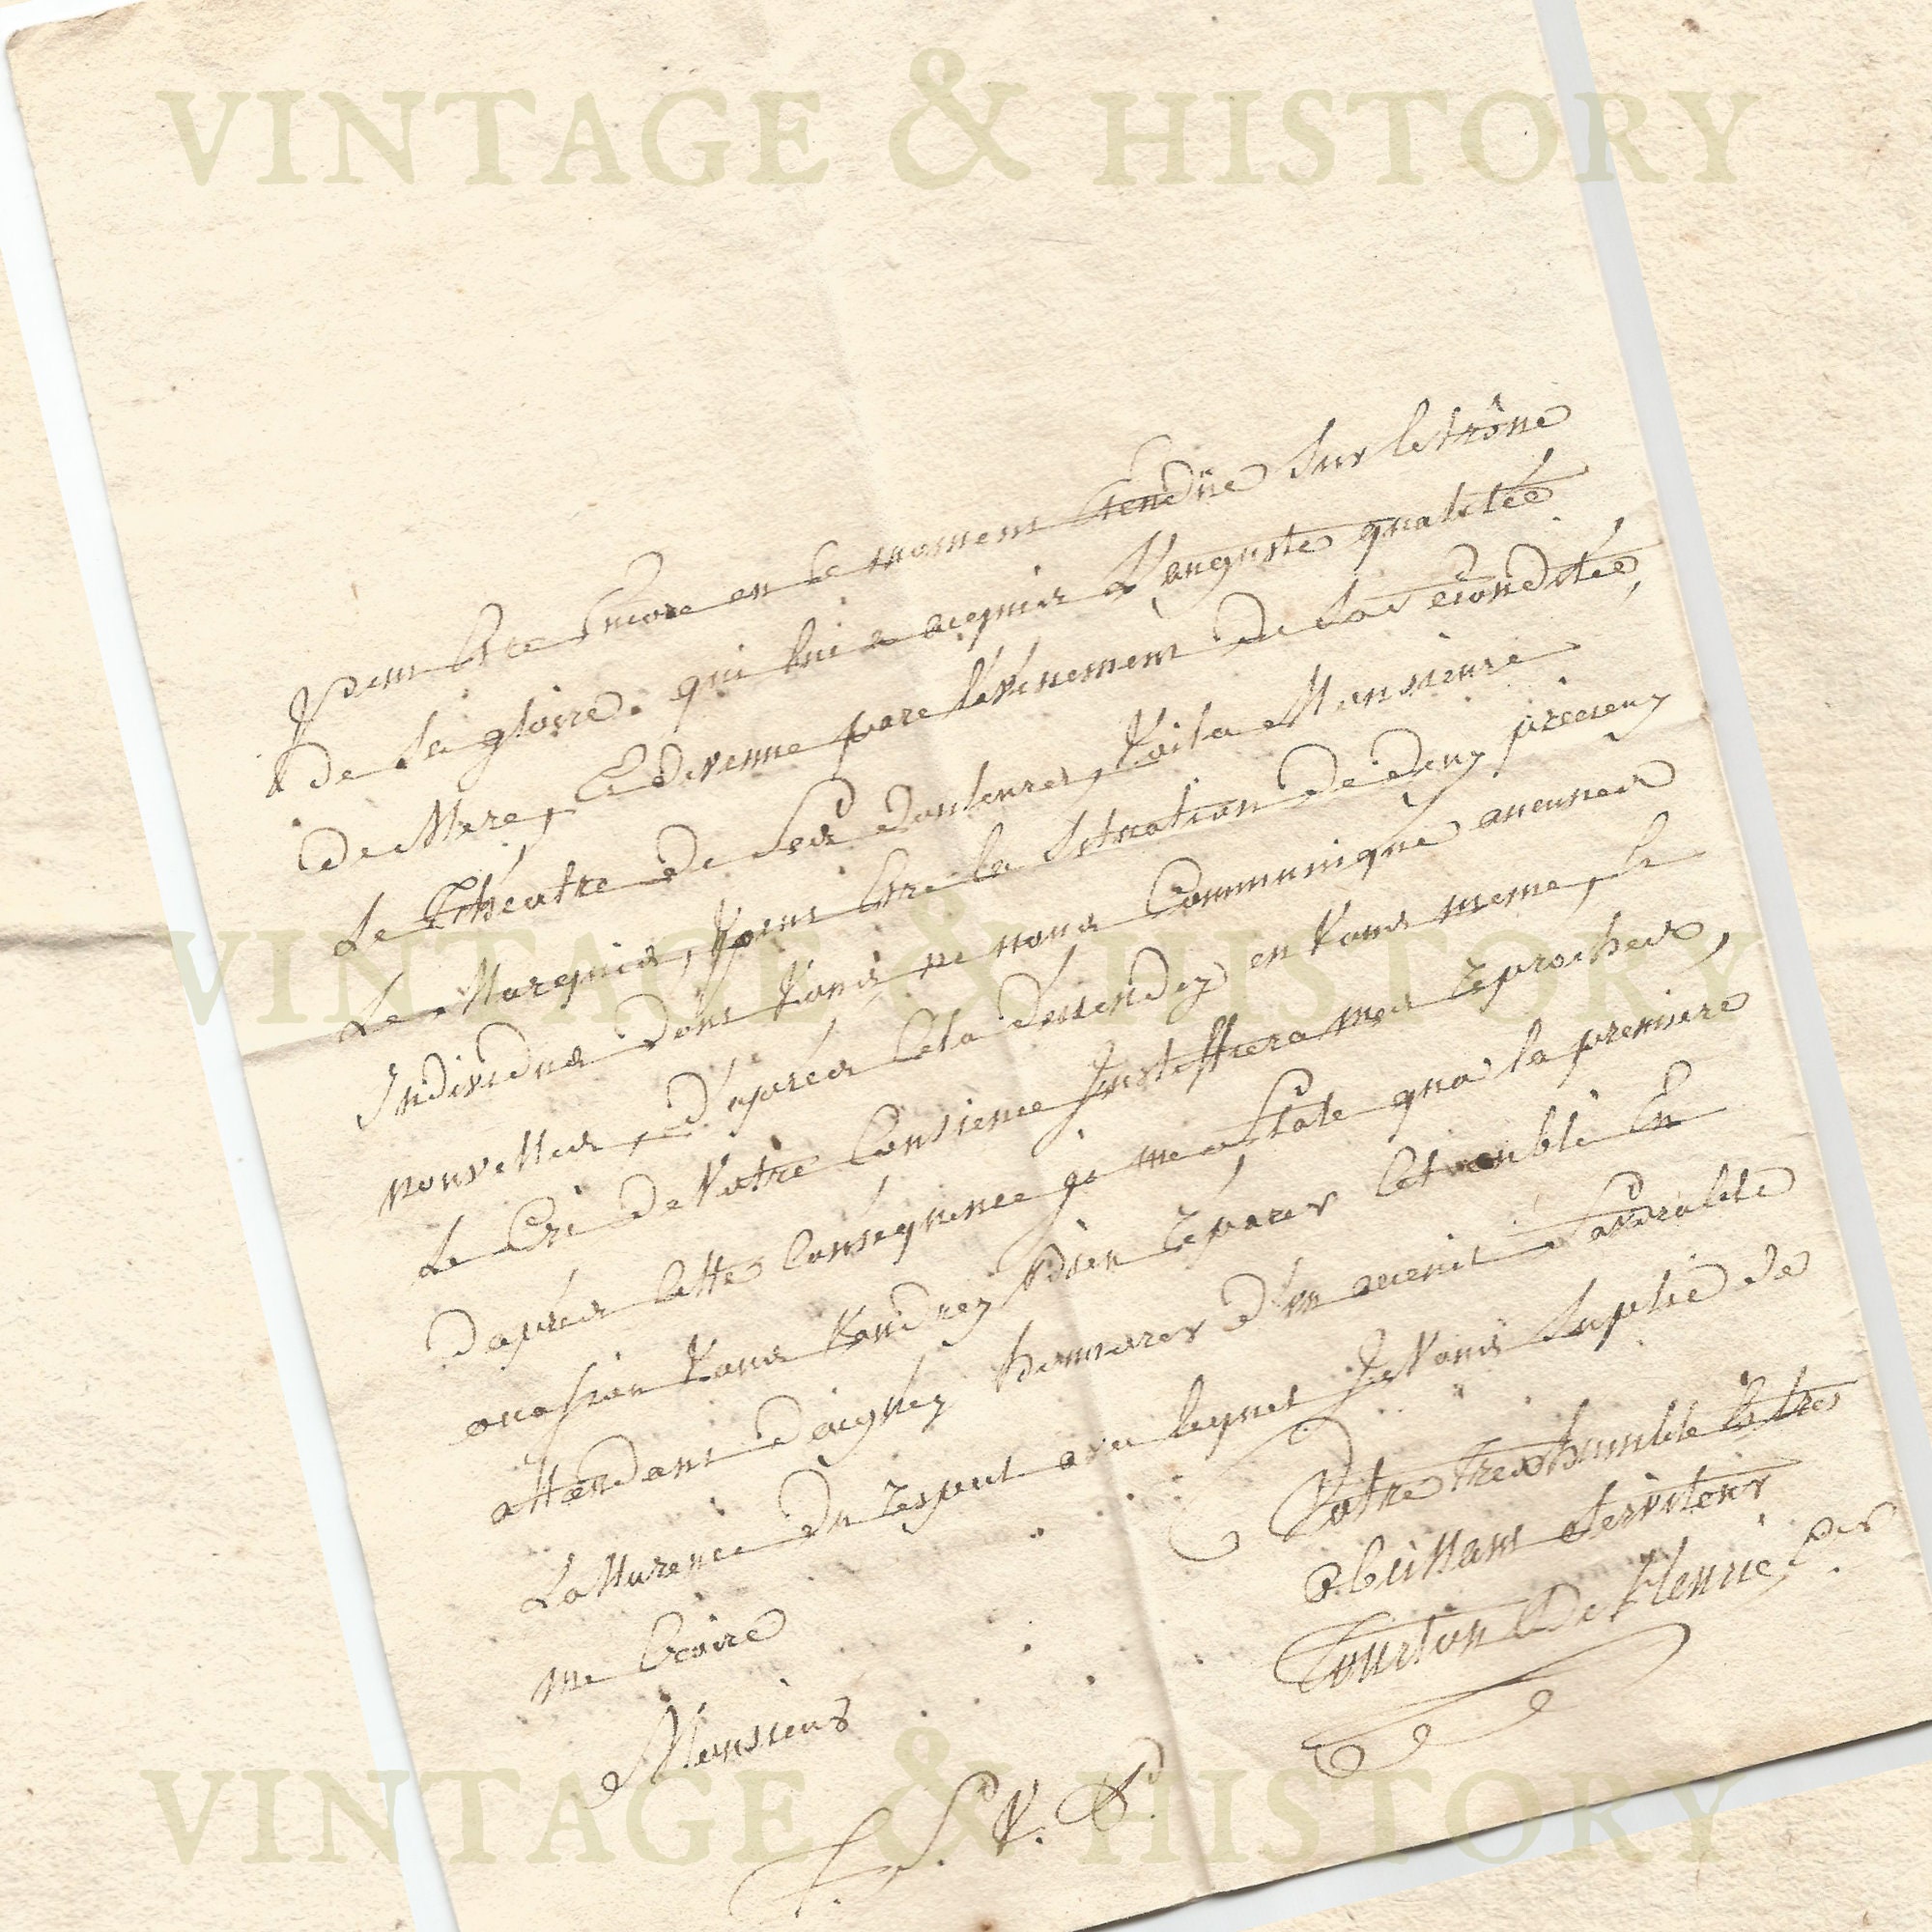 VINTAGE & HISTORY
peut être encore en ce moment étendüe sur le trône
de sa gloire, qui lui a acquis L'auguste qualitée
de Mere, Et devenue par l'événement de sa fécondité,
Le Théatre de ses douleures, Voila Monsieure
Le Marquis, peut être la situation de deux precieux
VINTAGE & HISTORY
Individus dont Vous ne nous Communiqué aucunes
nouvelles, d'après cela dessendez en Vous meme, et
Le Cri de Votre Consience Justiffiera mes reproches,
d'après cette Conséquence je me flate qu'a la premiere
occasion Vous Voudrez bien réparer cet oubli En
attendant daignez honnorer d'un acueil favorable
L'assurence du respect avec lequel Je Vous suplie de
me Croire
Monsieur
Votre tres humble et tres
obeissant serviteur
Tourton De Fleurie
VINTAGE & HISTORY